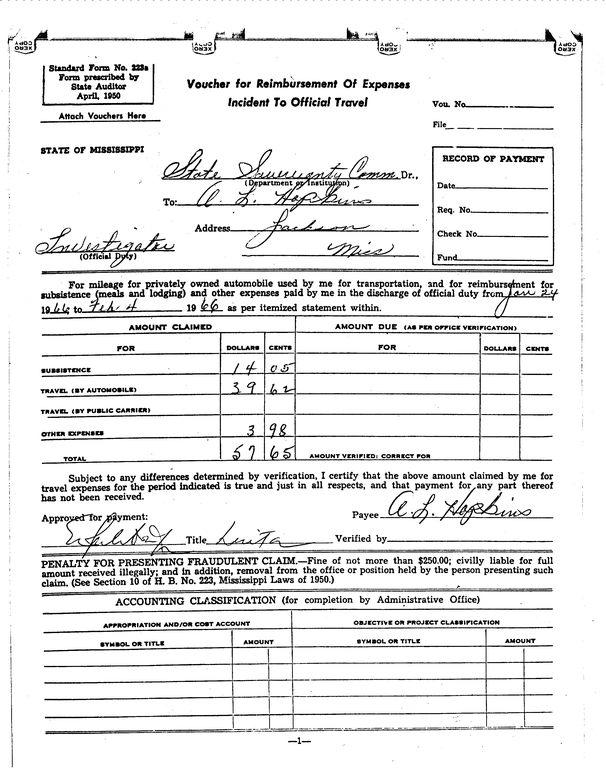 XERO COPY XERO COPY XERO COPY XERO COPY
Standard Form No. 223a
Form prescribed by
State Auditor
April, 1950
Attach Vouchers Here
Voucher for Reimbursement Of Expenses
Incident To Official Travel
Vou. No.
File
STATE OF MISSISSIPPI
State Sovereignty Comm. Dr.,
(Department or Institution)
To: A. L. Hopkins
Address Jackson
Miss
Investigator
(Official Duty)
RECORD OF PAYMENT
Date
Req. No.
Check No.
Fund
For mileage for privately owned automobile used by me for transportation, and for reimbursement for
subsistence (meals and lodging) and other expenses paid by me in the discharge of official duty from Jan 24
1966 to Feb. 4 1966 as per itemized statement within.
AMOUNT CLAIMED AMOUNT DUE (AS PER OFFICE VERIFICATION)
FOR DOLLARS CENTS FOR DOLLARS CENTS
SUBSISTENCE 14 05
TRAVEL (BY AUTOMOBILE) 39 62
TRAVEL (BY PUBLIC CARRIER)
OTHER EXPENSES 3 98
TOTAL 57 65 AMOUNT VERIFIED: CORRECT FOR
Subject to any differences determined by verification, I certify that the above amount claimed by me for
travel expenses for the period indicated is true and just in all respects, and that payment for any part thereof
has not been received.
Approved for payment: Payee A. L. Hopkins
Title Verified by
PENALTY FOR PRESENTING FRAUDULENT CLAIM.—Fine of not more than $250.00; civilly liable for full
amount received illegally; and in addition, removal from the office or position held by the person presenting such
claim. (See Section 10 of H. B. No. 223, Mississippi Laws of 1950.)
ACCOUNTING CLASSIFICATION (for completion by Administrative Office)
APPROPRIATION AND/OR COST ACCOUNT OBJECTIVE OR PROJECT CLASSIFICATION
SYMBOL OR TITLE AMOUNT SYMBOL OR TITLE AMOUNT
—1—